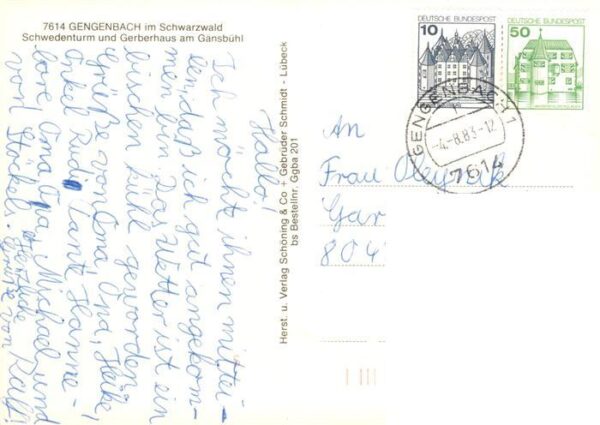 7614 GENGENBACH im Schwarzwald
Schwedenturm und Gerberhaus am Gansbühl
Hallo!
Ich möcht ihnen mittei-
len, daß ich gut angekom-
men bin. Das Wetter ist ein
bischen kühl geworden.
Grüße von Oma Opa, Heike,
Onkel Rudi Tante Hanne-
lore, Oma Opa, Michael und
von Stöckels. Herzliche
Grüße von Ralf!
Herst. u. Verlag Schöning & Co + Gebrüder Schmidt - Lübeck
bs Bestellnr. Ggba 201
10 DEUTSCHE BUNDESPOST
50 DEUTSCHE BUNDESPOST
GENGENBACH 1
-4.-8.83-12
7614
An
Frau
Gar
804